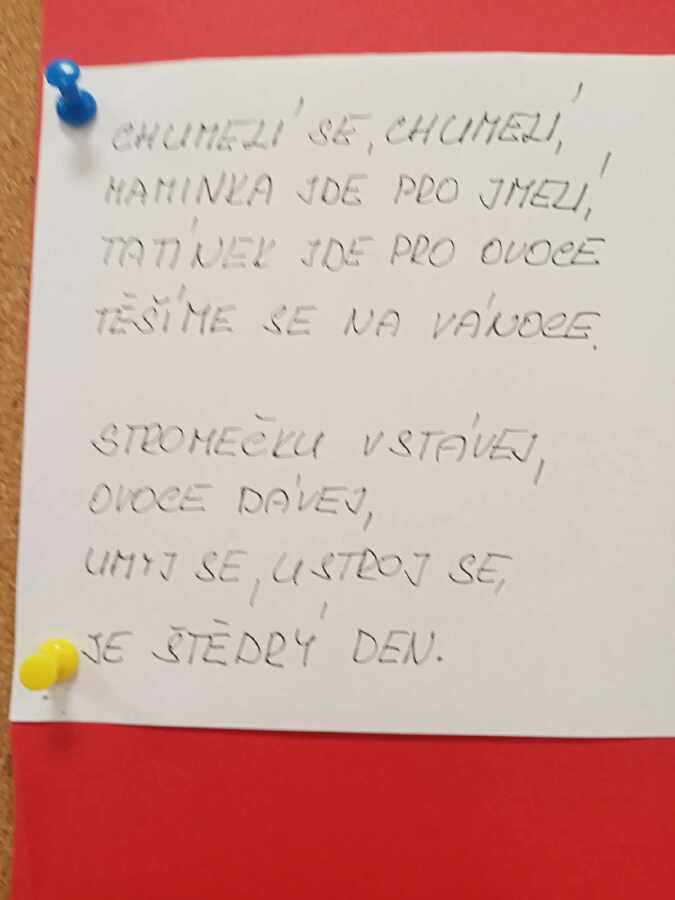 CHUMELÍ SE, CHUMELÍ,
MAMINKA JDE PRO JMELÍ,
TATÍNEK JDE PRO OVOCE
TĚŠÍME SE NA VÁNOCE.
STROMEČKU VSTÁVEJ,
OVOCE DÁVEJ,
UMYJ SE, USTROJ SE,
JE ŠTĚDRÝ DEN.